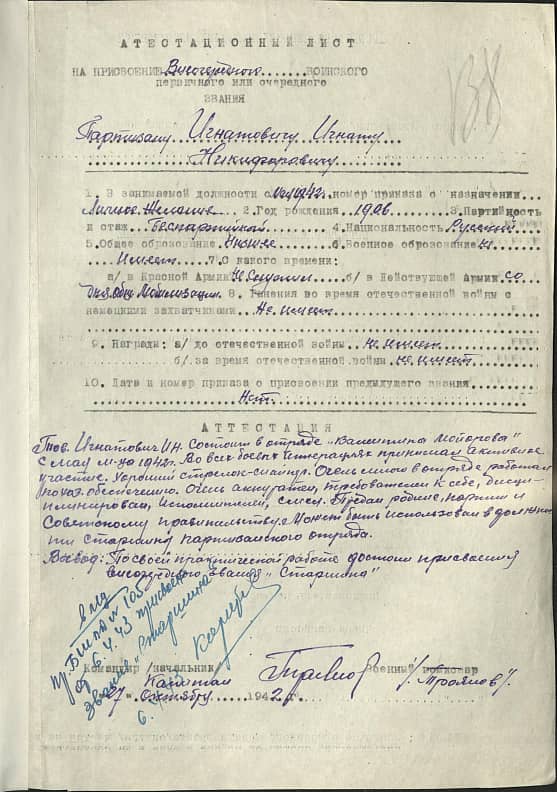 138
АТТЕСТАЦИОННЫЙ ЛИСТ
НА ПРИСВОЕНИЕ Внеочередного.......ВОИНСКОГО
первичного или очередного
ЗВАНИЯ
Партизану Игнатовичу Игнату
Никифоровичу
1. В занимаемой должности с мая 1942г. номер приказа о назначении
Личное Желание 2.Год рождения 1906 3.Партийность
и стаж Беспартийный 4.Национальность Русский
5.Общее образование Низшее 6.Военное образование не
имеет 7.С какого времени:
а/ в Красной Армии Не служил б/ в Действующей Армии со
дня объ. Мобилизации 8. Ранения во время отечественной войны с
немецкими захватчиками Не имеет
9. Награды: а/ до отечественной войны не имеет
б/ за время отечественной войны не имеет
10. Дата и номер приказа о присвоении предыдущего звания
Нет.
АТТЕСТАЦИЯ
Тов. Игнатович И.Н. Состоит в отряде "Валентина Майорова"
с мая м-ца 1942г. Во всех боевых операциях принимал активное
участие. Хороший стрелок-снайпер. Очень много в отряде работал
по хоз. обеспечению. Очень аккуратен, требователен к себе, дисци-
плинирован, исполнителен, смел. Предан родине, партии и
Советскому правительству. Может быть использован в должнос-
ти старшины партизанского отряда.
Вывод: По своей практической работе достоин присвоения
внеочередного звания "Старшина"
пр. БШПД № 105
от 6.4.43 присвоено
звание "Старшина"
6.4.43
Командир /начальник/ Военный комиссар
Капитан /Троянов/.
"27" Октября 1942 г.